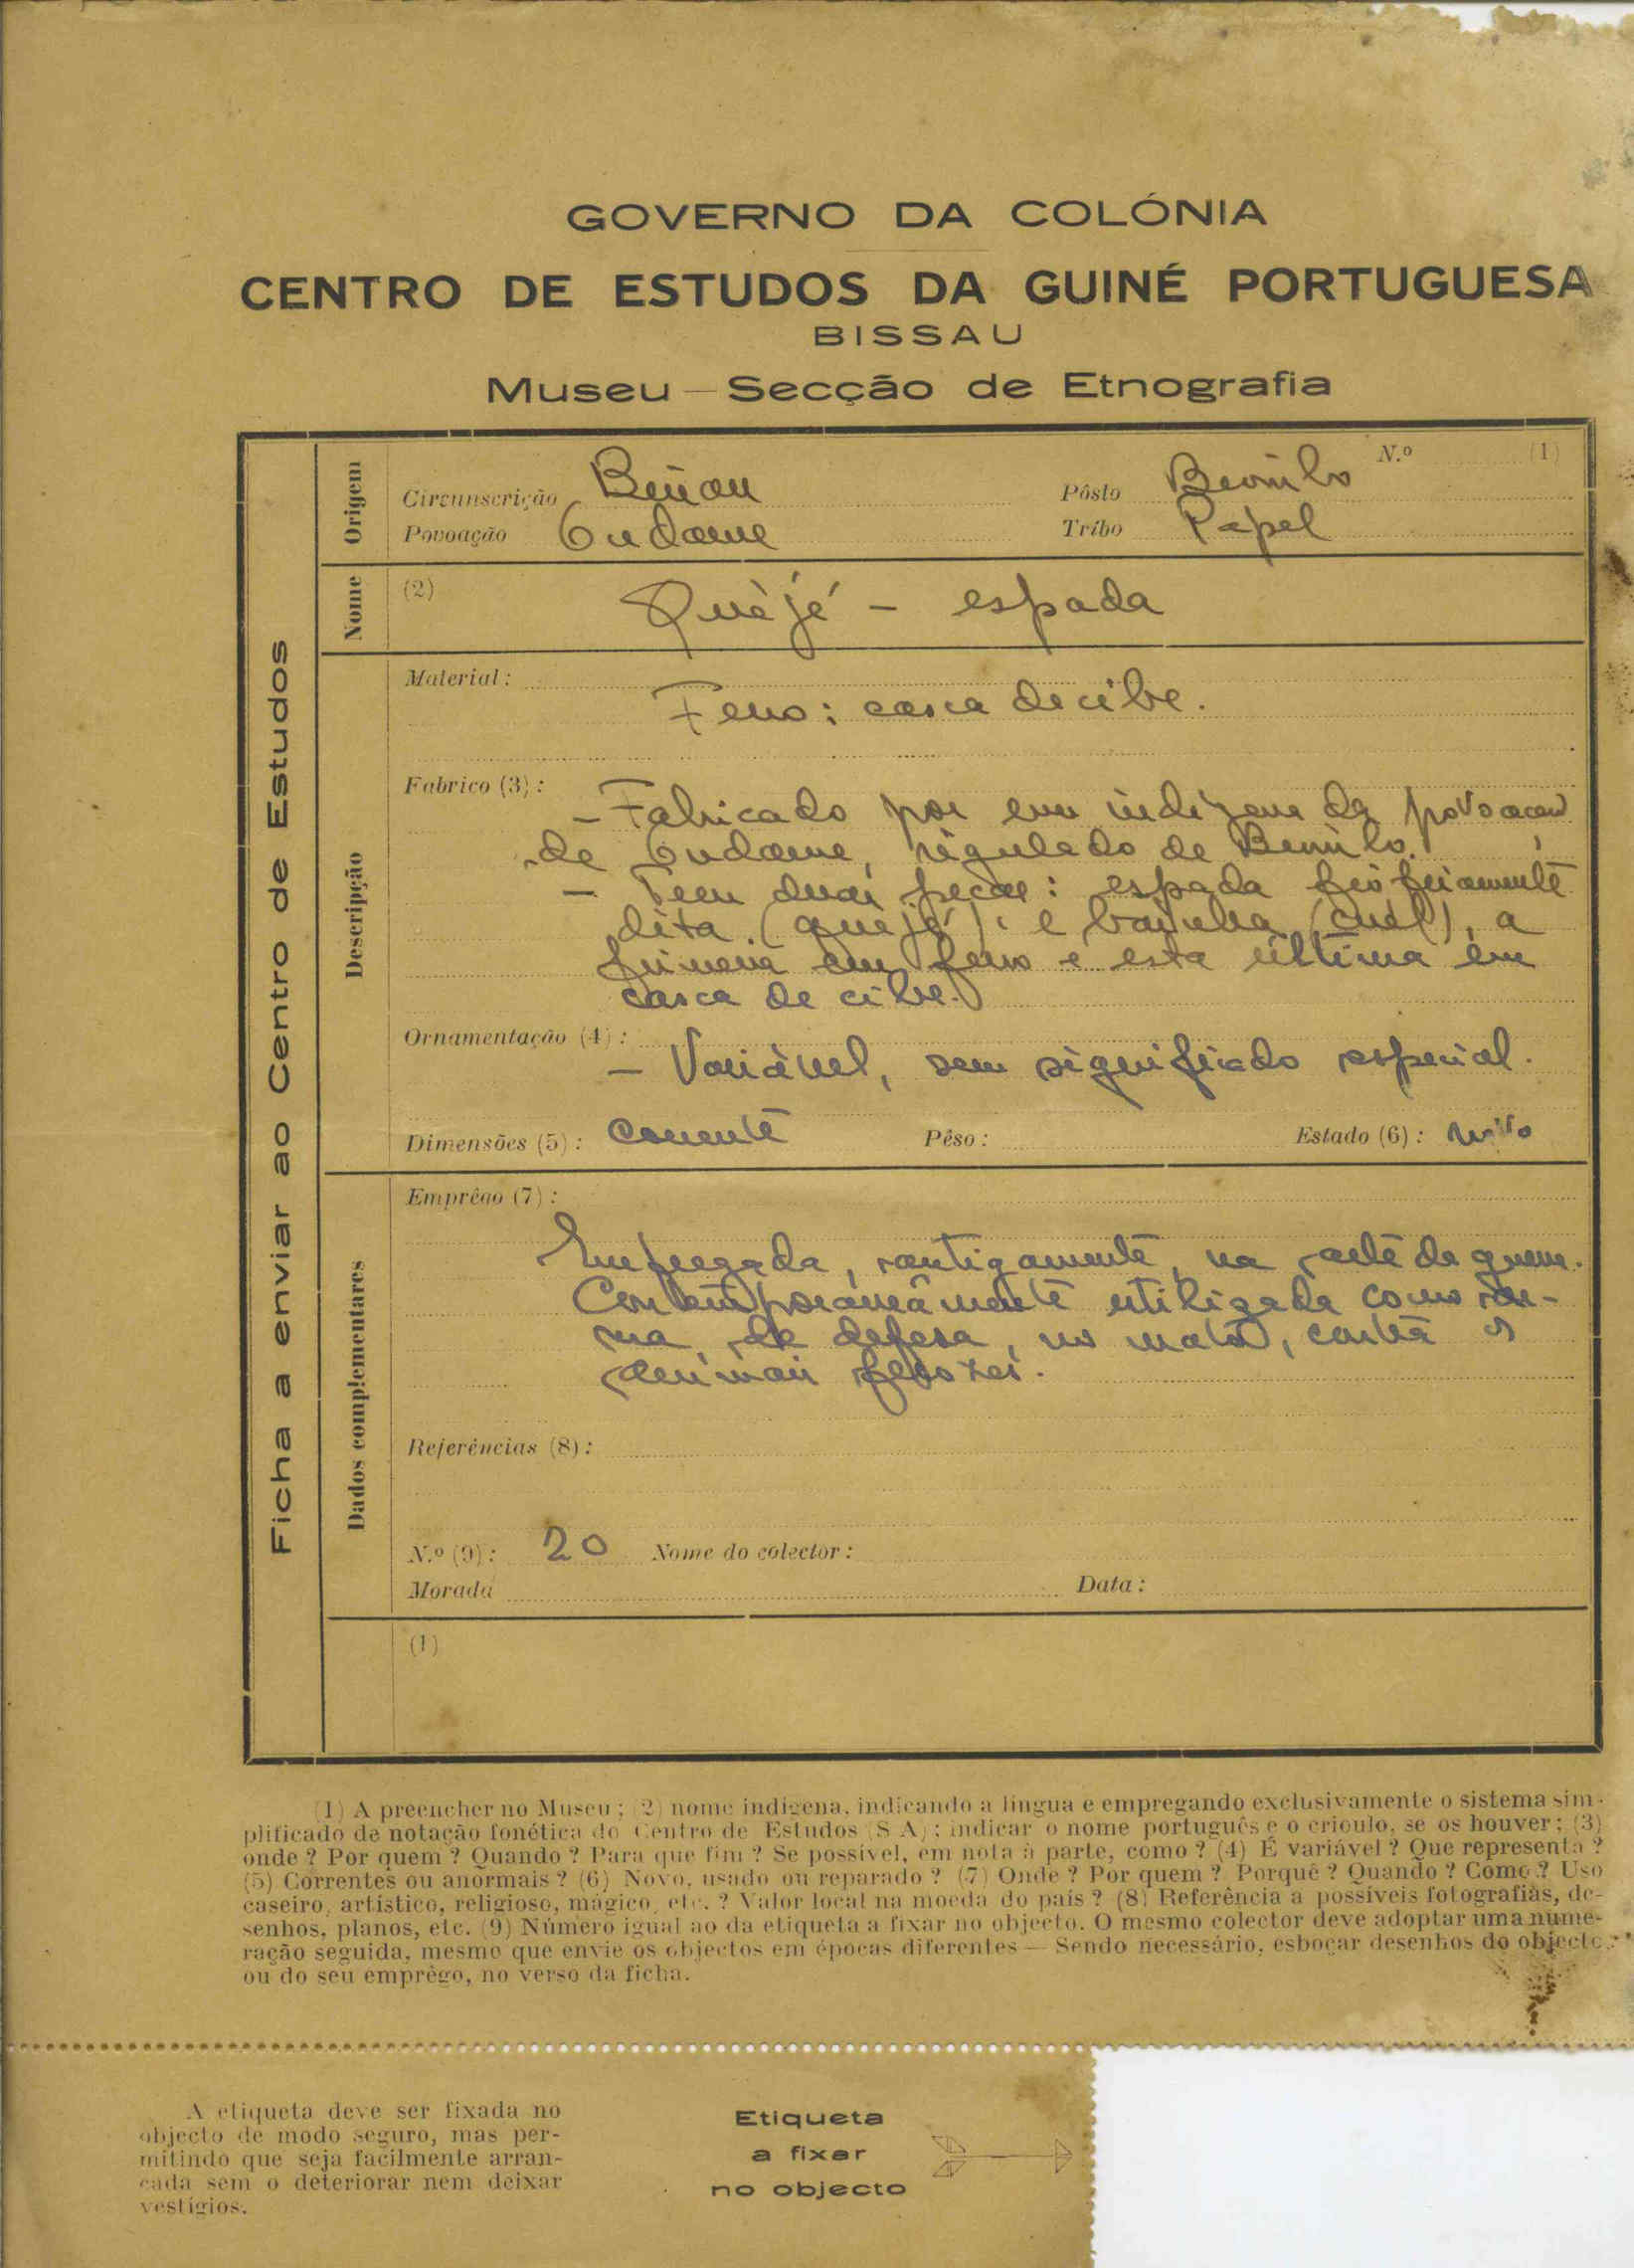 GOVERNO DA COLÓNIA
CENTRO DE ESTUDOS DA GUINÉ PORTUGUESA
BISSAU
Museu — Secção de Etnografia
Ficha a enviar ao Centro de Estudos
Origem
N.º (1)
Circunscrição Bissau Pôsto
Povoação Tribo Papel
Nome
(2) Quèjé - espada
Descripção
Material:
Ferro: casca de cibe.
Fabrico (3):
- Fabricado por um indígena da povoação
de regulado de
- Tem duas peças: espada pròpriamente
dita (quèjé); e bainha a
primeira em ferro e esta última em
casca de cibe.
Ornamentação (4):
- Variável, sem significado especial.
Dimensões (5): Corrente Pêso: Estado (6): novo
Dados complementares
Emprêgo (7):
Empregada, antigamente, na arte da guerra.
Contemporâneamente utilizada como ar-
ma de defesa, no mato, contra os
animais ferozes.
Referências (8):
N.º (9): 20 Nome do colector:
Morada Data:
(1)
(1) A preencher no Museu; (2) nome indígena, indicando a língua e empregando exclusivamente o sistema sim-
plificado de notação fonética do Centro de Estudos (S A); indicar o nome português e o crioulo, se os houver; (3)
onde? Por quem? Quando? Para que fim? Se possível, em nota à parte, como? (4) É variável? Que representa?
(5) Correntes ou anormais? (6) Novo, usado ou reparado? (7) Onde? Por quem? Porquê? Quando? Como? Uso
caseiro, artístico, religioso, mágico, etc.? Valor local na moeda do país? (8) Referência a possíveis fotografias, de-
senhos, planos, etc. (9) Número igual ao da etiqueta a fixar no objecto. O mesmo colector deve adoptar uma nume-
ração seguida, mesmo que envie os objectos em épocas diferentes — Sendo necessário, esboçar desenhos do objecto
ou do seu emprêgo, no verso da ficha.
A etiqueta deve ser fixada no
objecto de modo seguro, mas per-
mitindo que seja facilmente arran-
cada sem o deteriorar nem deixar
vestígios.
Etiqueta
a fixar
no objecto